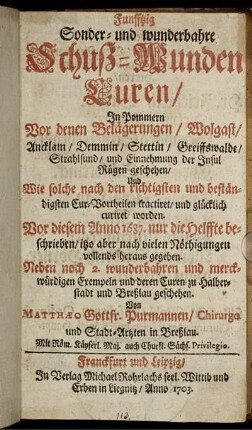 Funfftzig
Sonder- und wunderbahre
Schuß-Wunden
Curen/
In Pommern
Vor denen Belägerungen / Wolgast/
Ancklam / Demmin / Stettin / Greiffswalde/
Strahlsund / und Einnehmung der Insul
Rügen geschehen/
Und
Wie solche nach den richtigsten und bestän-
digsten Cur-Vortheilen tractiret / und glücklich
curiret worden.
Vor diesem Anno 1687. nur die Helffte be-
schrieben / itzo aber nach vielen Nöthigungen
vollends heraus gegeben.
Neben noch 2. wunderbahren und merck-
würdigen Exempeln und deren Curen zu Halber-
stadt und Breßlau geschehen.
Von
MATTHÆO Gottfr. Purmannen / Chirurgo
und Stadt-Artzten in Breßlau.
Mit Röm. Käyserl. Maj. auch Churfl. Sächs. Privilegio.
Franckfurt und Leipzig/
In Verlag Michael Rohrlachs seel. Wittib und
Erben in Liegnitz / Anno 1703.